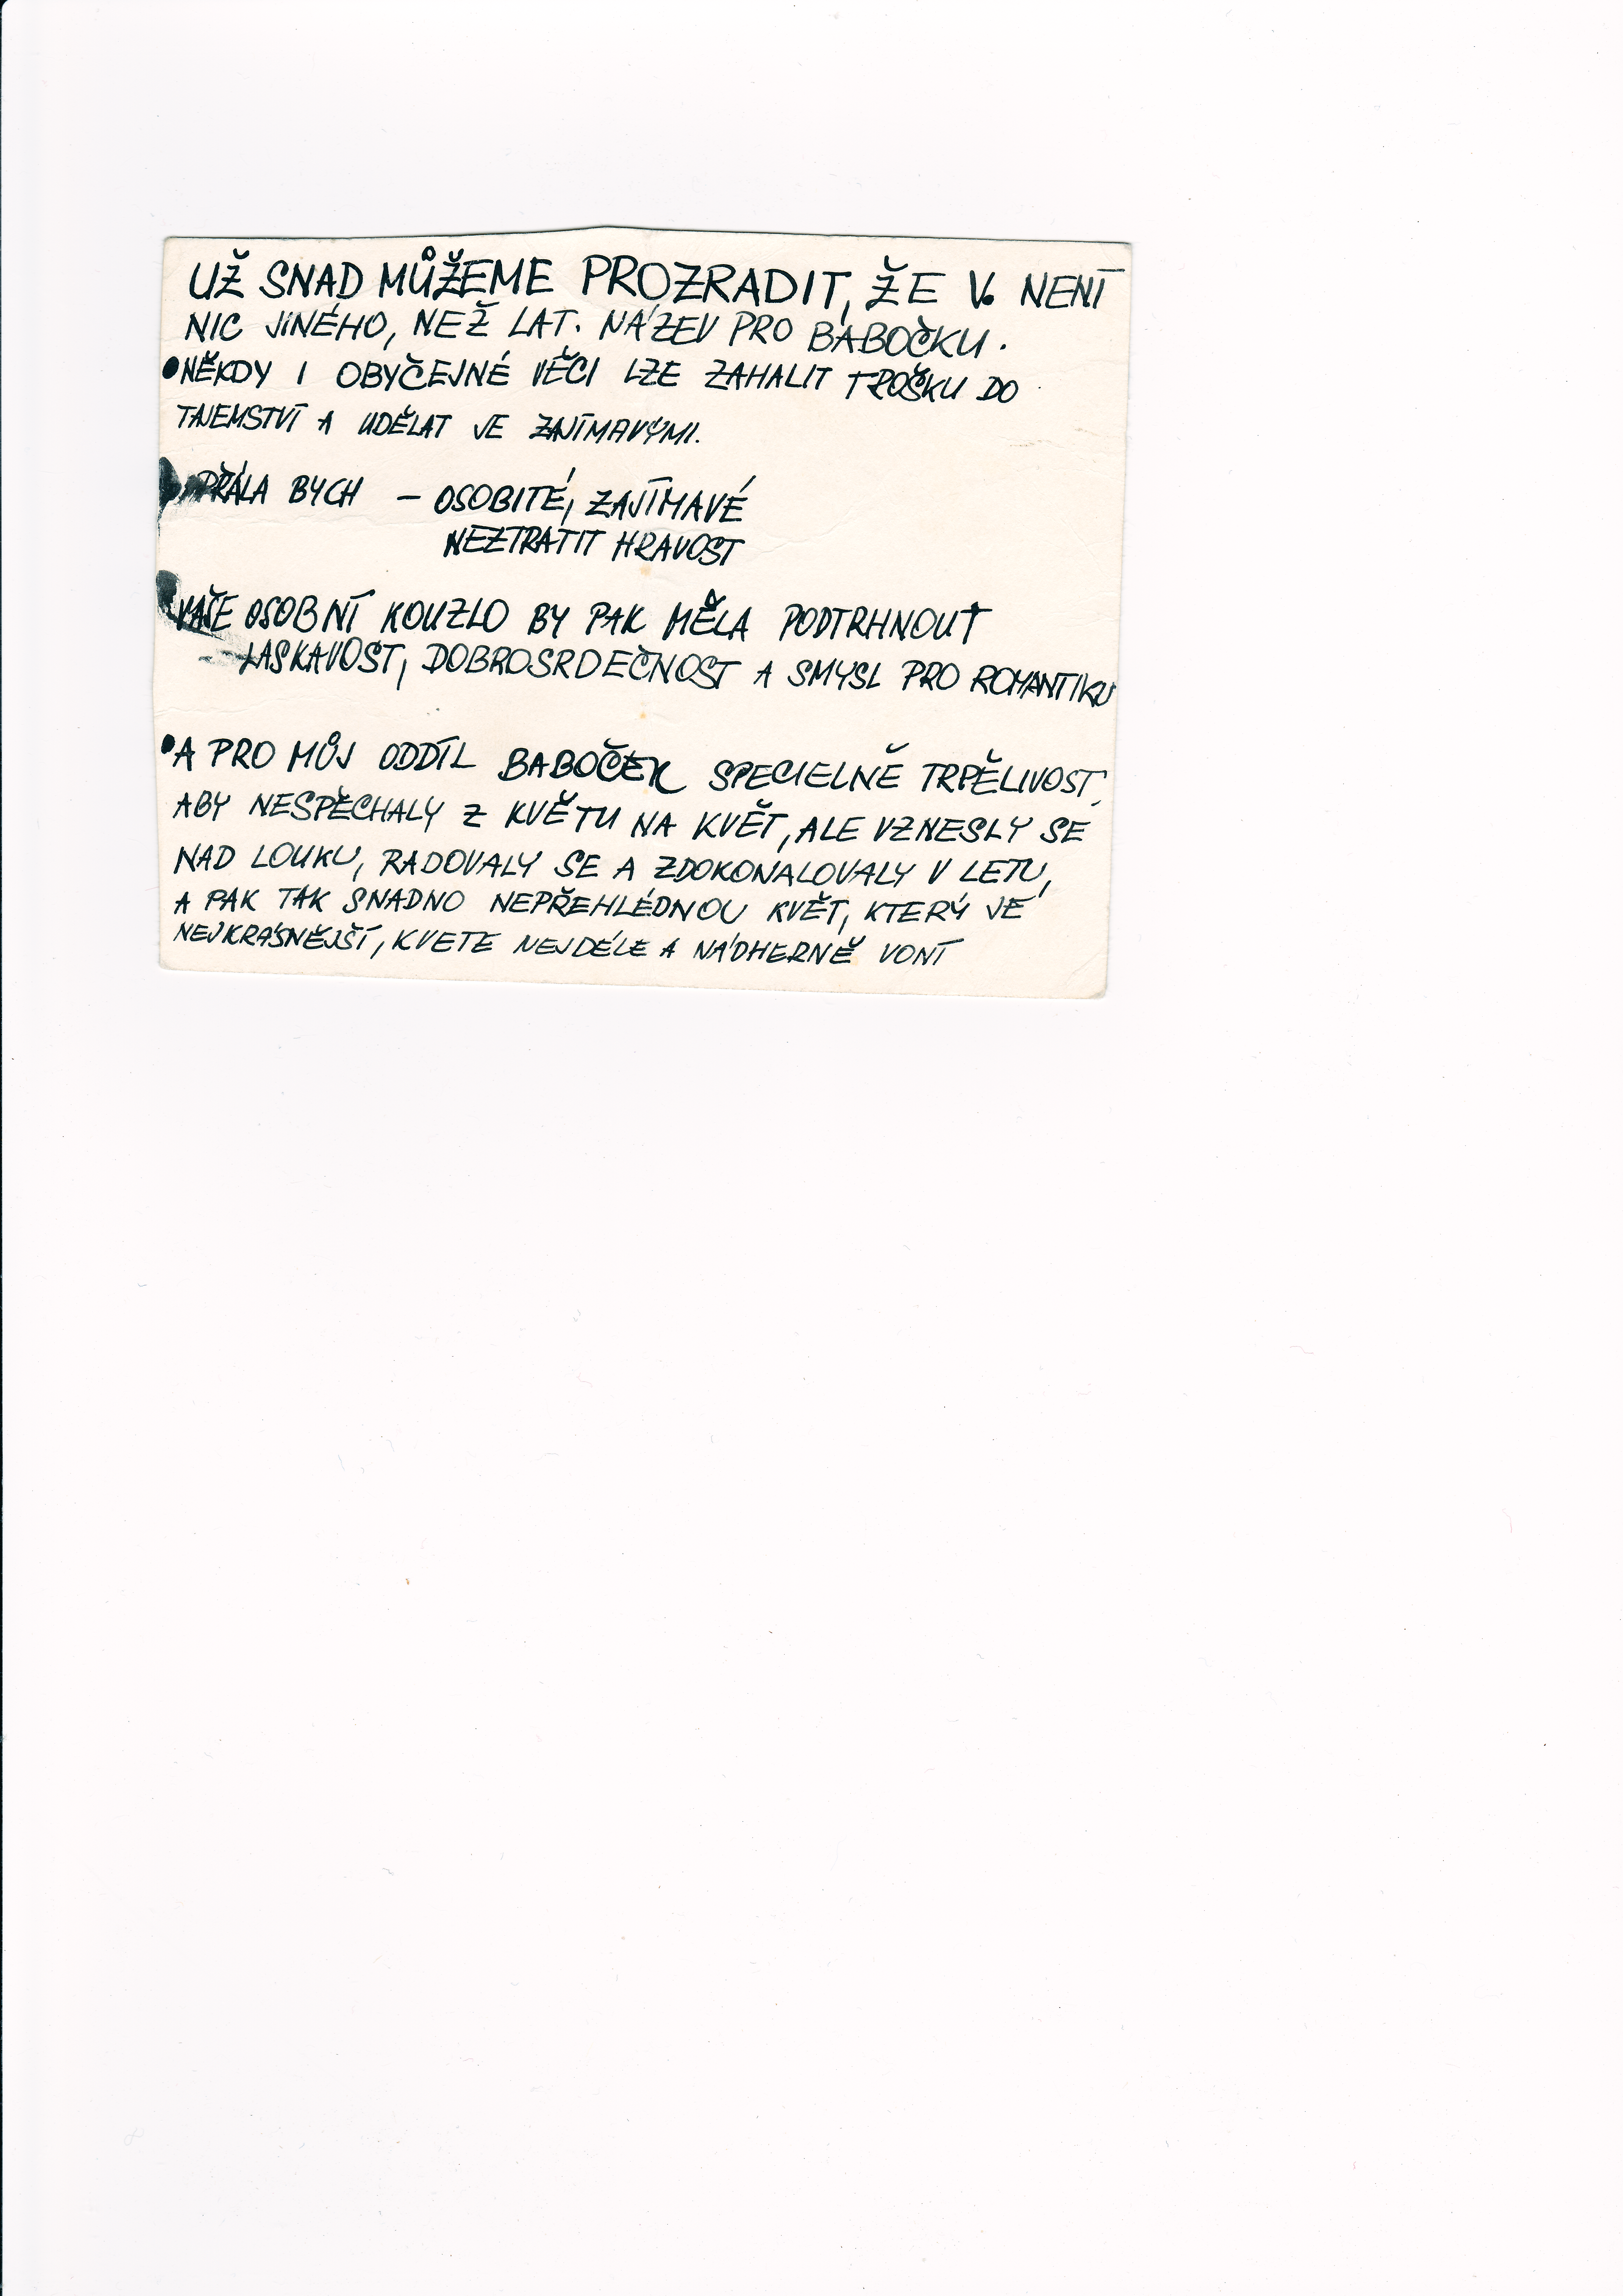 UŽ SNAD MŮŽEME PROZRADIT, ŽE V. NENÍ
NIC JINÉHO, NEŽ LAT. NÁZEV PRO BABOČKU.
• NĚKDY I OBYČEJNÉ VĚCI LZE ZAHALIT TROŠKU DO
TAJEMSTVÍ A UDĚLAT JE ZAJÍMAVÝMI.
PŘÁLA BYCH – OSOBITÉ, ZAJÍMAVÉ
NEZTRATIT HRAVOST
VAŠE OSOBNÍ KOUZLO BY PAK MĚLA PODTRHNOUT
– LASKAVOST, DOBROSRDEČNOST A SMYSL PRO ROMANTIKU
• A PRO MŮJ ODDÍL BABOČEK SPECIELNĚ TRPĚLIVOST,
ABY NESPĚCHALY Z KVĚTU NA KVĚT, ALE VZNESLY SE
NAD LOUKU, RADOVALY SE A ZDOKONALOVALY V LETU,
A PAK TAK SNADNO NEPŘEHLÉDNOU KVĚT, KTERÝ JE
NEJKRÁSNĚJŠÍ, KVETE NEJDÉLE A NÁDHERNĚ VONÍ